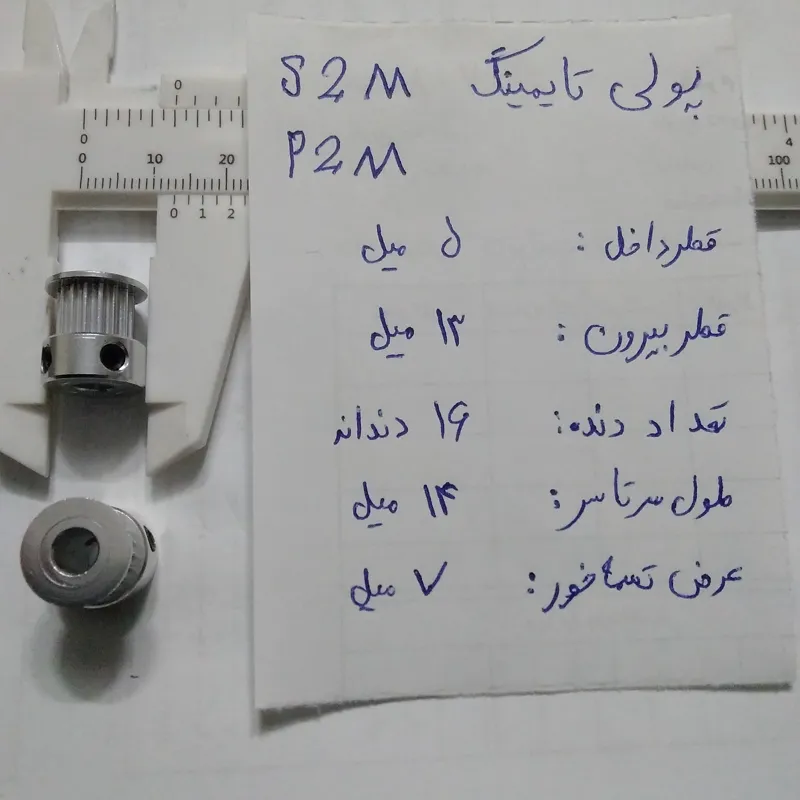 پولی تایمینگ S2M
P2M
قطر داخل : ۵ میل
قطر بیرون : ۱۳ میل
تعداد دنده: ۱۶ دندانه
طول سرتاسر: ۱۴ میل
عرض تسمه خور: ۷ میل
0
0
4
0 10 20
100
0 1 2